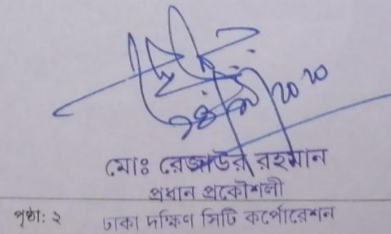 মোঃ রেজাউর রহমান
প্রধান প্রকৌশলী
পৃষ্ঠা: ২ ঢাকা দক্ষিণ সিটি কর্পোরেশন